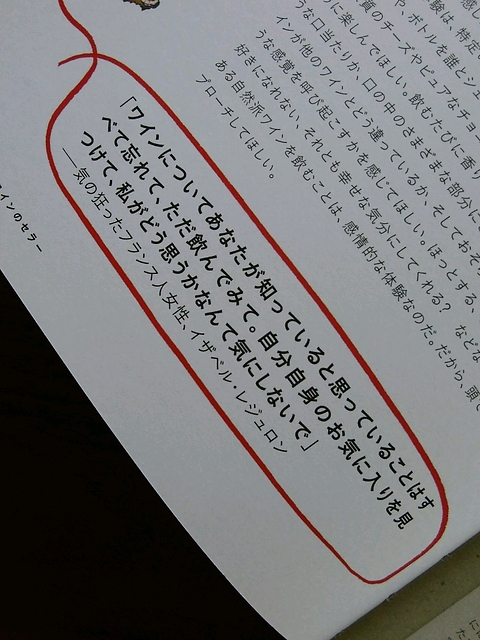 験は、特定の
や、ボトルを誰とシェ
質のチーズやピュアなチョ
に楽しんでほしい。飲むたびに香り
うな口当たりか、口の中のさまざまな部分に
インが他のワインとどう違っているか、そしておそ
うな感覚を呼び起こすかを感じてほしい。ほっとする、
好きになれない、それとも幸せな気分にしてくれる？ などな
ある自然派ワインを飲むことは、感情的な体験なのだ。だから、頭
プローチしてほしい。
「ワインについてあなたが知っていると思っていることはす
べて忘れて、ただ飲んでみて。自分自身のお気に入りを見
つけて、私がどう思うかなんて気にしないで」
――気の狂ったフランス人女性、イザベル・レジュロン
インのセラー